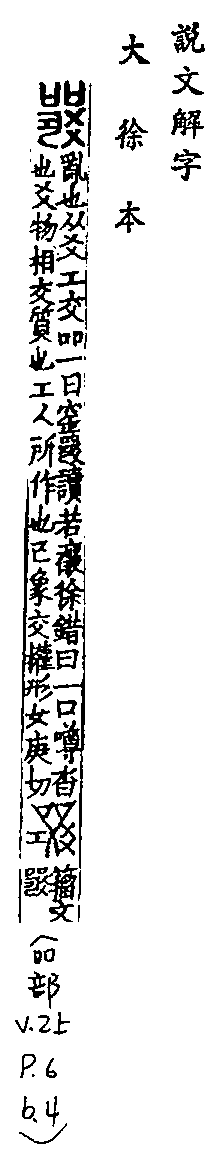 說文解字
大徐本
亂也从爻工交吅一曰窒𤕦讀若穰徐鍇曰二口噂沓
也爻物相交質也工人所作也己象交構形女庚切
籒文
(吅部
V.2上
P.6
b.4)